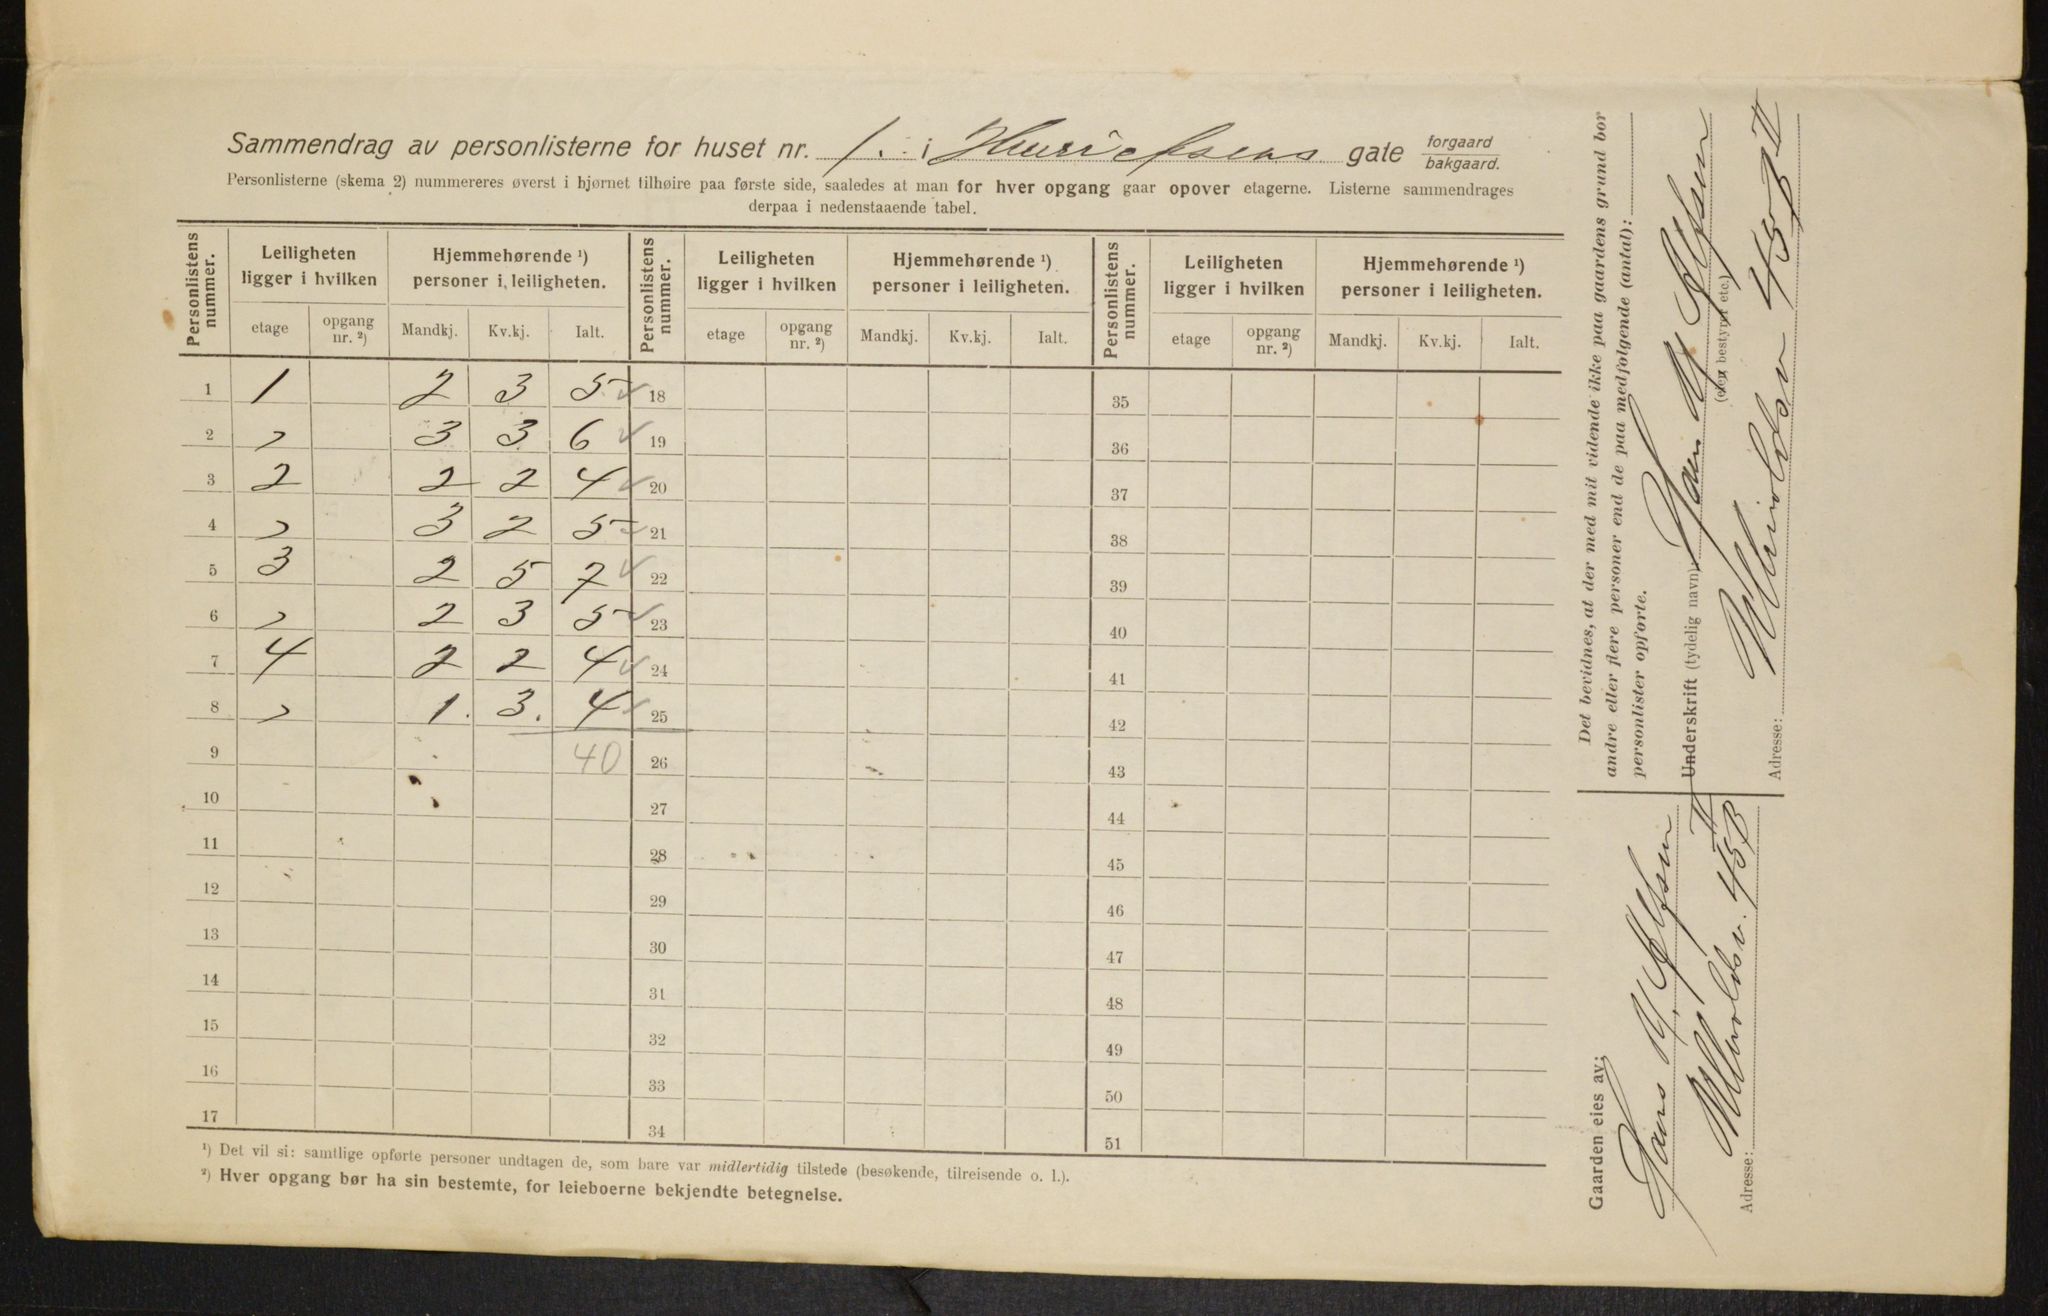 Sammendrag av personlisterne for huset nr. 1. i gate forgaard
bakgaard.
Personlisterne (skema 2) nummereres øverst i hjørnet tilhøire paa første side, saaledes at man for hver opgang gaar opover etagerne. Listerne sammendrages
derpaa i nedenstaaende tabel.
Personlistens nummer. Leiligheten ligger i hvilken Hjemmehørende ¹) personer i leiligheten. Personlistens nummer. Leiligheten ligger i hvilken Hjemmehørende ¹) personer i leiligheten. Personlistens nummer. Leiligheten ligger i hvilken Hjemmehørende ¹) personer i leiligheten.
etage opgang nr. ²) Mandkj. Kv.kj. Ialt. etage opgang nr. ²) Mandkj. Kv.kj. Ialt. etage opgang nr. ²) Mandkj. Kv.kj. Ialt.
1 1 2 3 5 18 35
2 " 3 3 6 19 36
3 2 2 2 4 20 37
4 " 3 2 5 21 38
5 3 2 5 7 22 39
6 " 2 3 5 23 40
7 4 2 2 4 24 41
8 " 1. 3. 4 25 42
9 40 26 43
10 27 44
11 28 45
12 29 46
13 30 47
14 31 48
15 32 49
16 33 50
17 34 51
¹) Det vil si: samtlige opførte personer undtagen de, som bare var midlertidig tilstede (besøkende, tilreisende o. l.).
²) Hver opgang bør ha sin bestemte, for leieboerne bekjendte betegnelse.
Det bevidnes, at der med mit vidende ikke paa gaardens grund bor
andre eller flere personer end de paa medfølgende (antal):
personlister opførte.
Underskrift (tydelig navn):
(eier, bestyrer etc.)
Adresse: 45B II
Gaarden eies av:
Hans
Adresse: 45B II